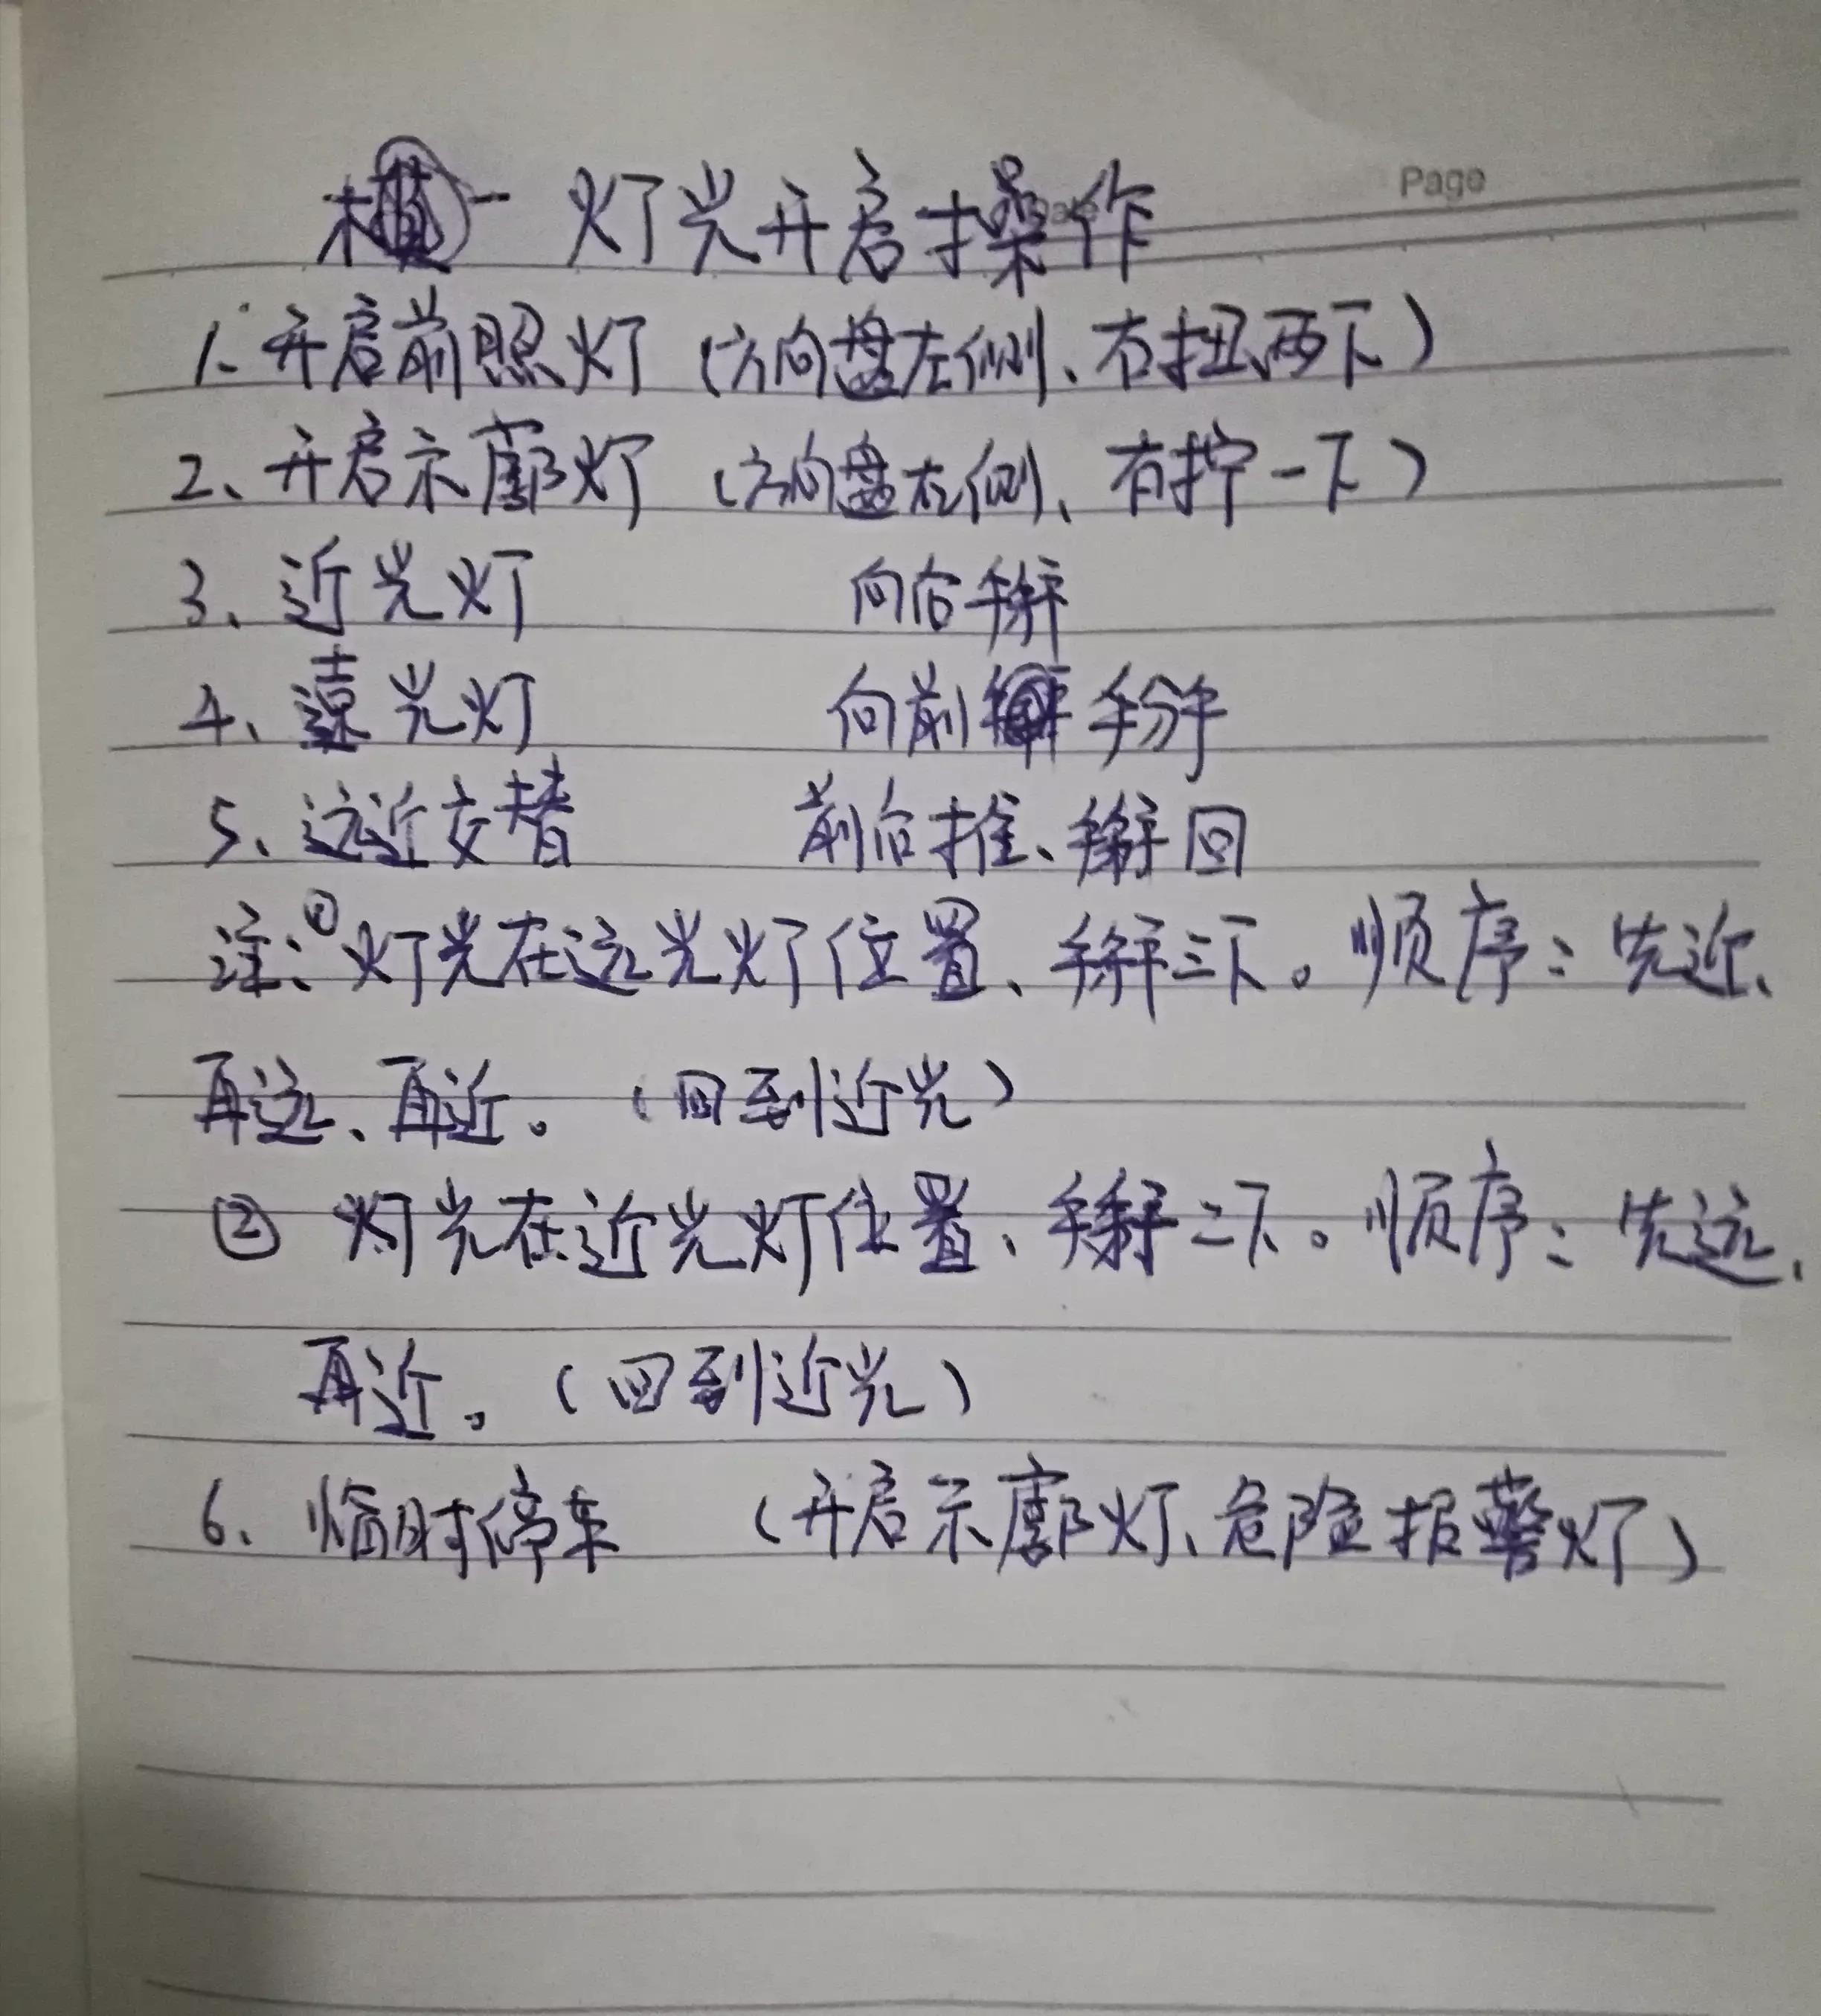 Page
一 灯光开启操作
1、开启前照灯(方向盘左侧、右扭两下)
2、开启示廓灯(方向盘左侧、有拧一下)
3、近光灯 向后掰
4、遠光灯 向前 掰
5、远近交替 前后推、掰回
注:①灯光在远光灯位置、掰三下。顺序:先近、
再远、再近。(回到近光)
② 灯光在近光灯位置、掰二下。顺序:先远、
再近。(回到近光)
6、临时停车 (开启示廓灯、危险报警灯)